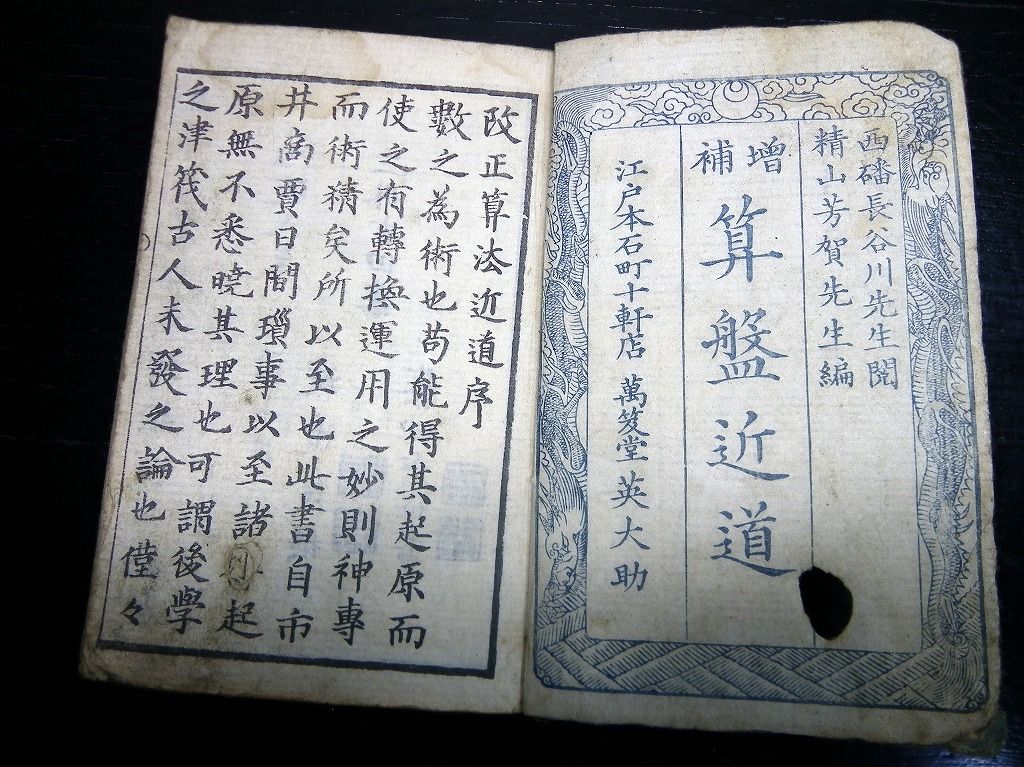 西磻長谷川先生閲
精山芳賀先生編
増補
算盤近道
江戸本石町十軒店 萬笈堂英大助
改正算法近道序
數之為術也苟能得其起原而
使之有轉換運用之妙則神專
而術精矣所以至也此書自市
井商賈日間瑣事以至諸 起
原無不悉曉其理也可謂後學
之津筏古人未發之論也僅々